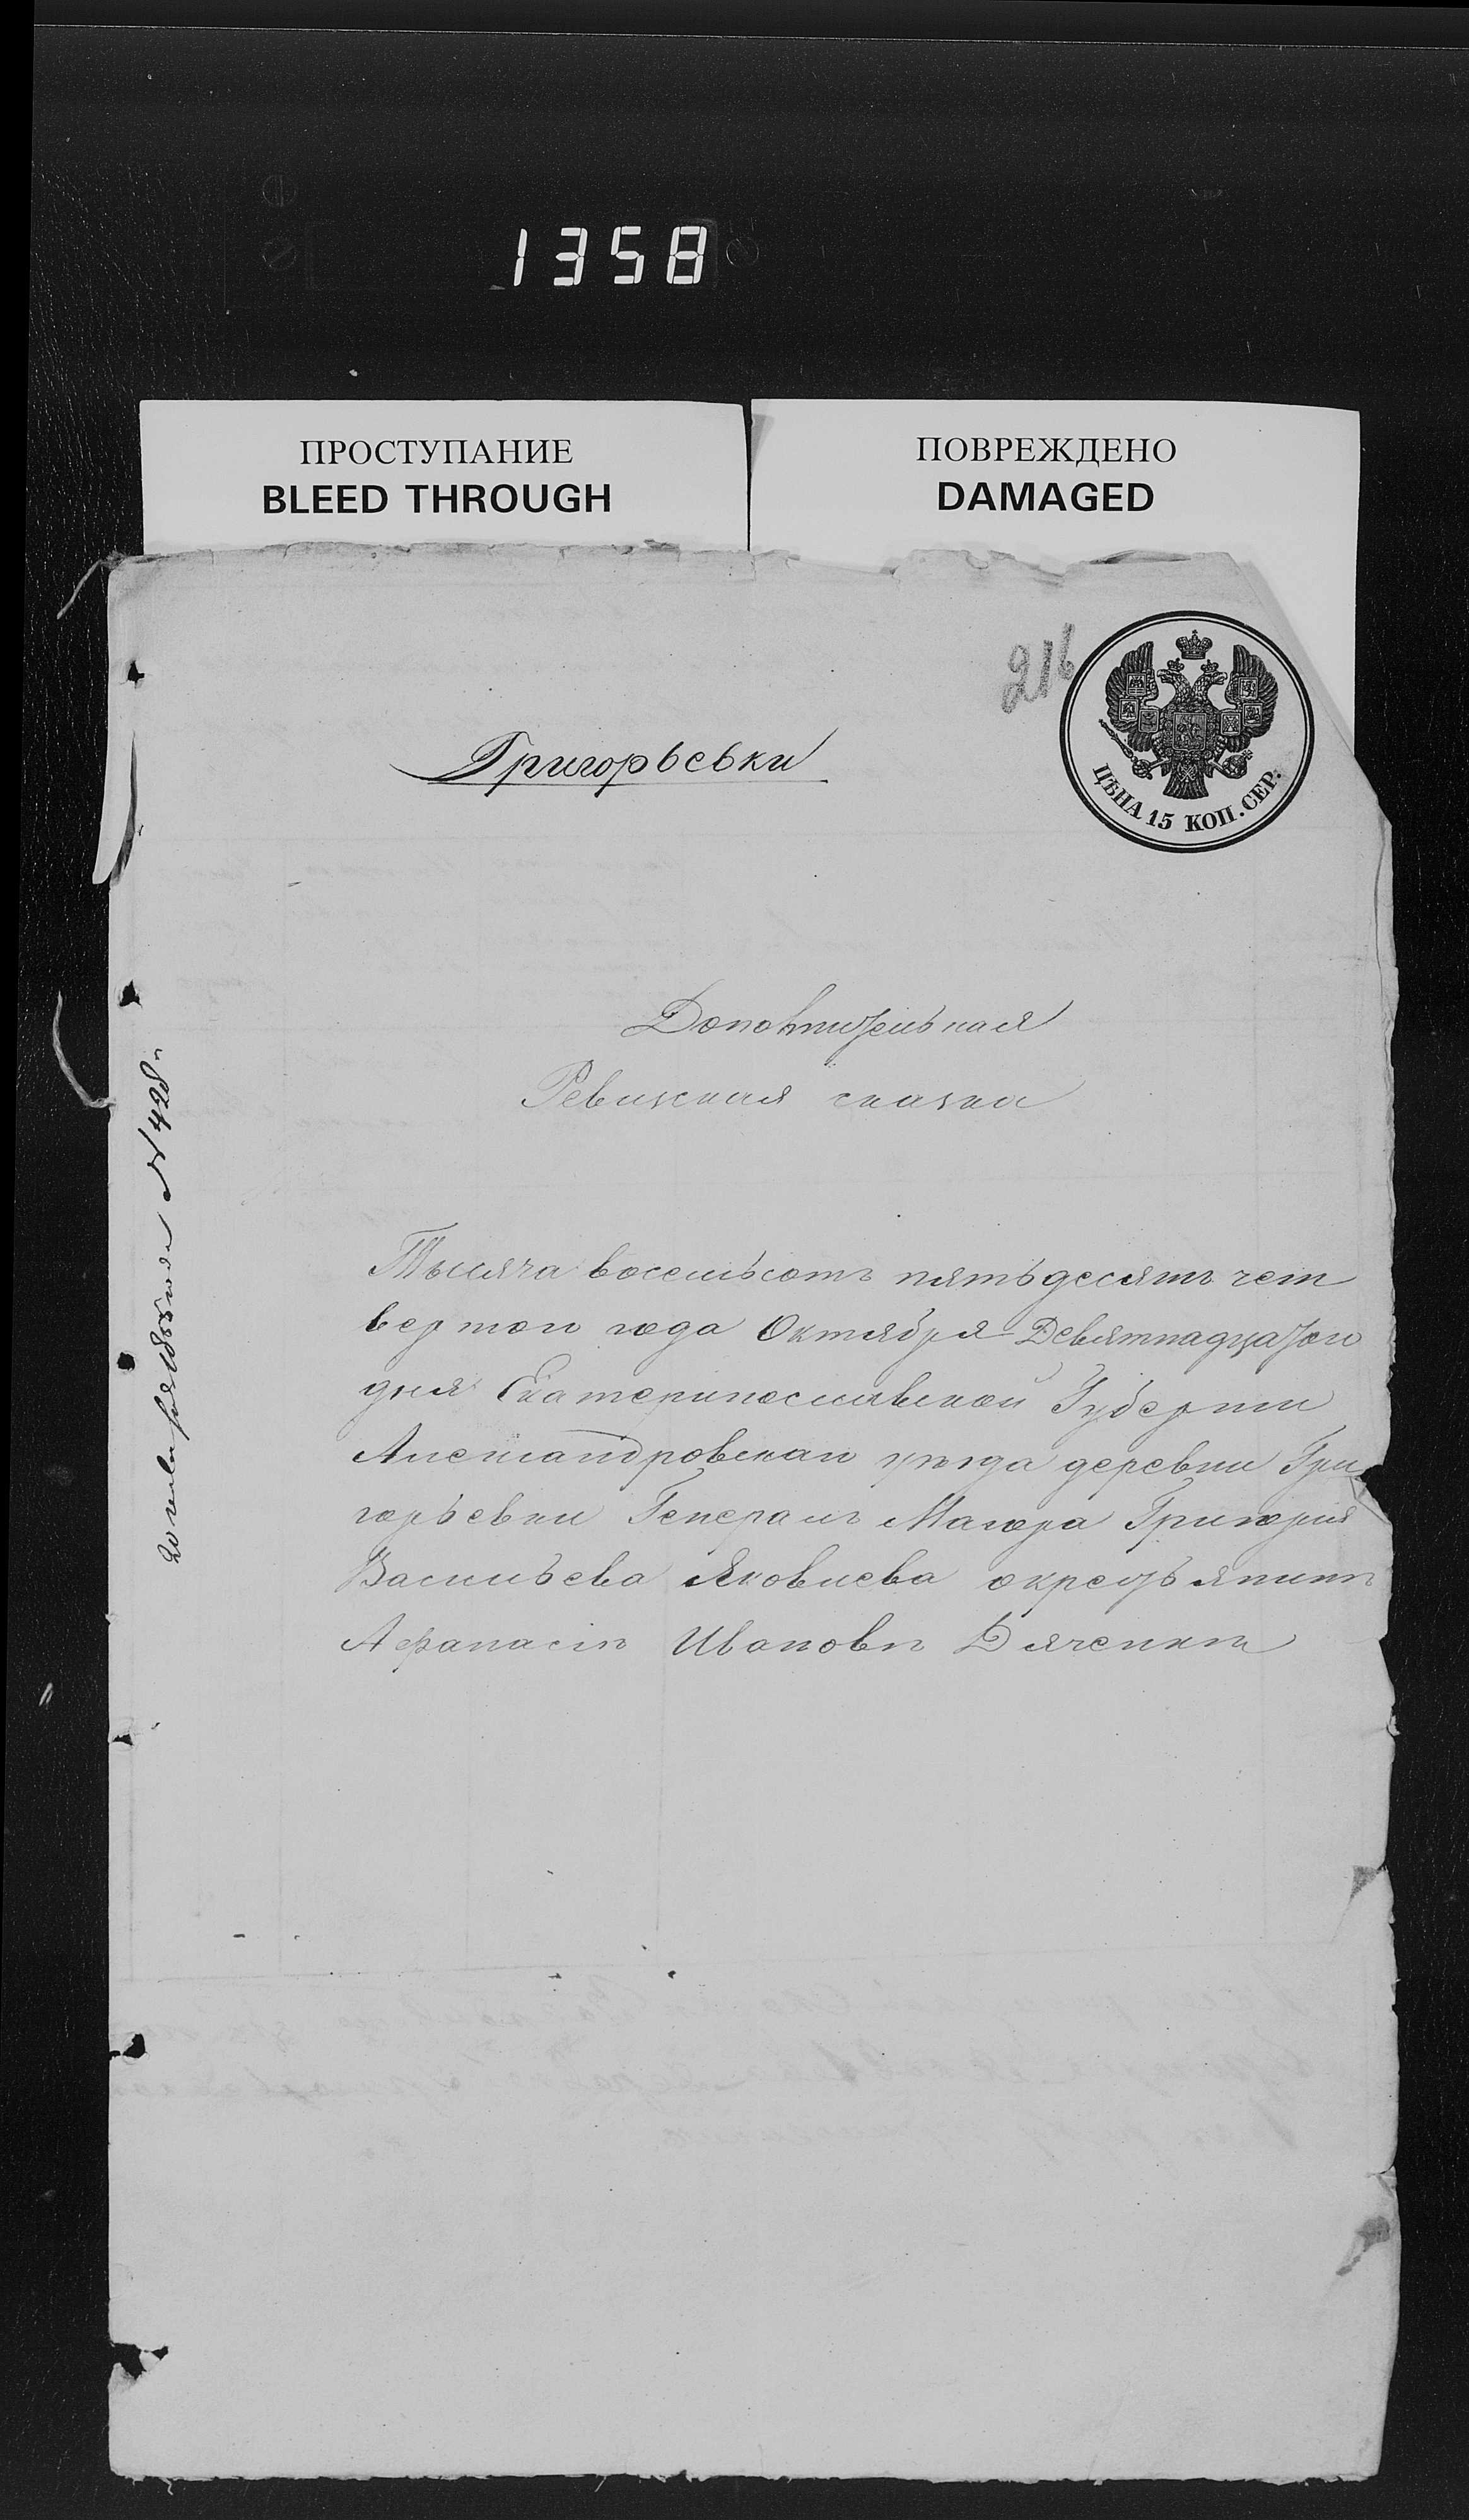 1358
ПРОСТУПАНИЕ
BLEED THROUGH
ПОВРЕЖДЕНО
DAMAGED
216
ЦѢНА 15 КОП. СЕР.
Григорьевки
Дополнительная
Ревизская сказка
Тысяча восемьсотъ пятьдесятъ чет
вертого года Октября Девятнадцатого
дня Екатеринославской Губернии
Александровскаго уѣзда деревни Гри
горьевки Генералъ Маиора Григория
Васильева Яковлева о крестьянинѣ
Афанасіѣ Ивановѣ Дяченкѣ
20 1855 года № 428